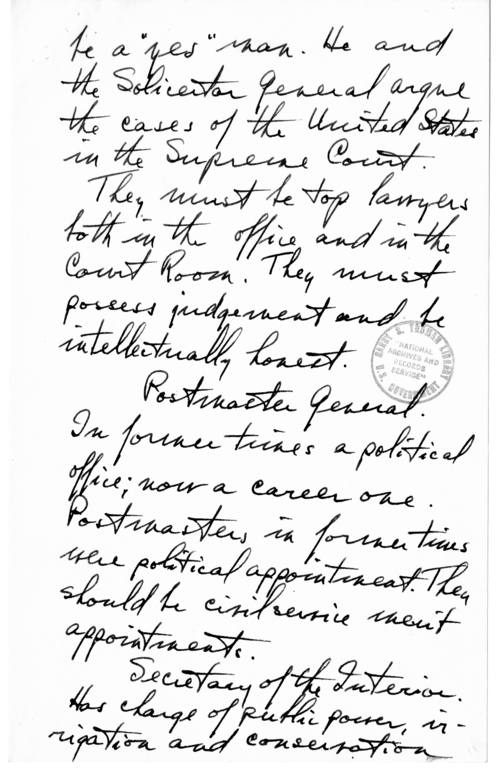 be a "yes" man. He and
the Solicitor General argue
the cases of the United States
in the Supreme Court.
They must be top lawyers
both in the office and in the
Court Room. They must
possess judgement and be
intellectually honest.
HARRY S. TRUMAN LIBRARY
"NATIONAL
ARCHIVES AND
RECORDS
SERVICE"
U.S. GOVERNMENT
Postmaster General.
In former times a political
office; now a career one.
Postmasters in former times
were political appointment. They
should be civil service merit
appointments.
Secretary of the Interior.
Has charge of public power, ir-
rigation and conservation